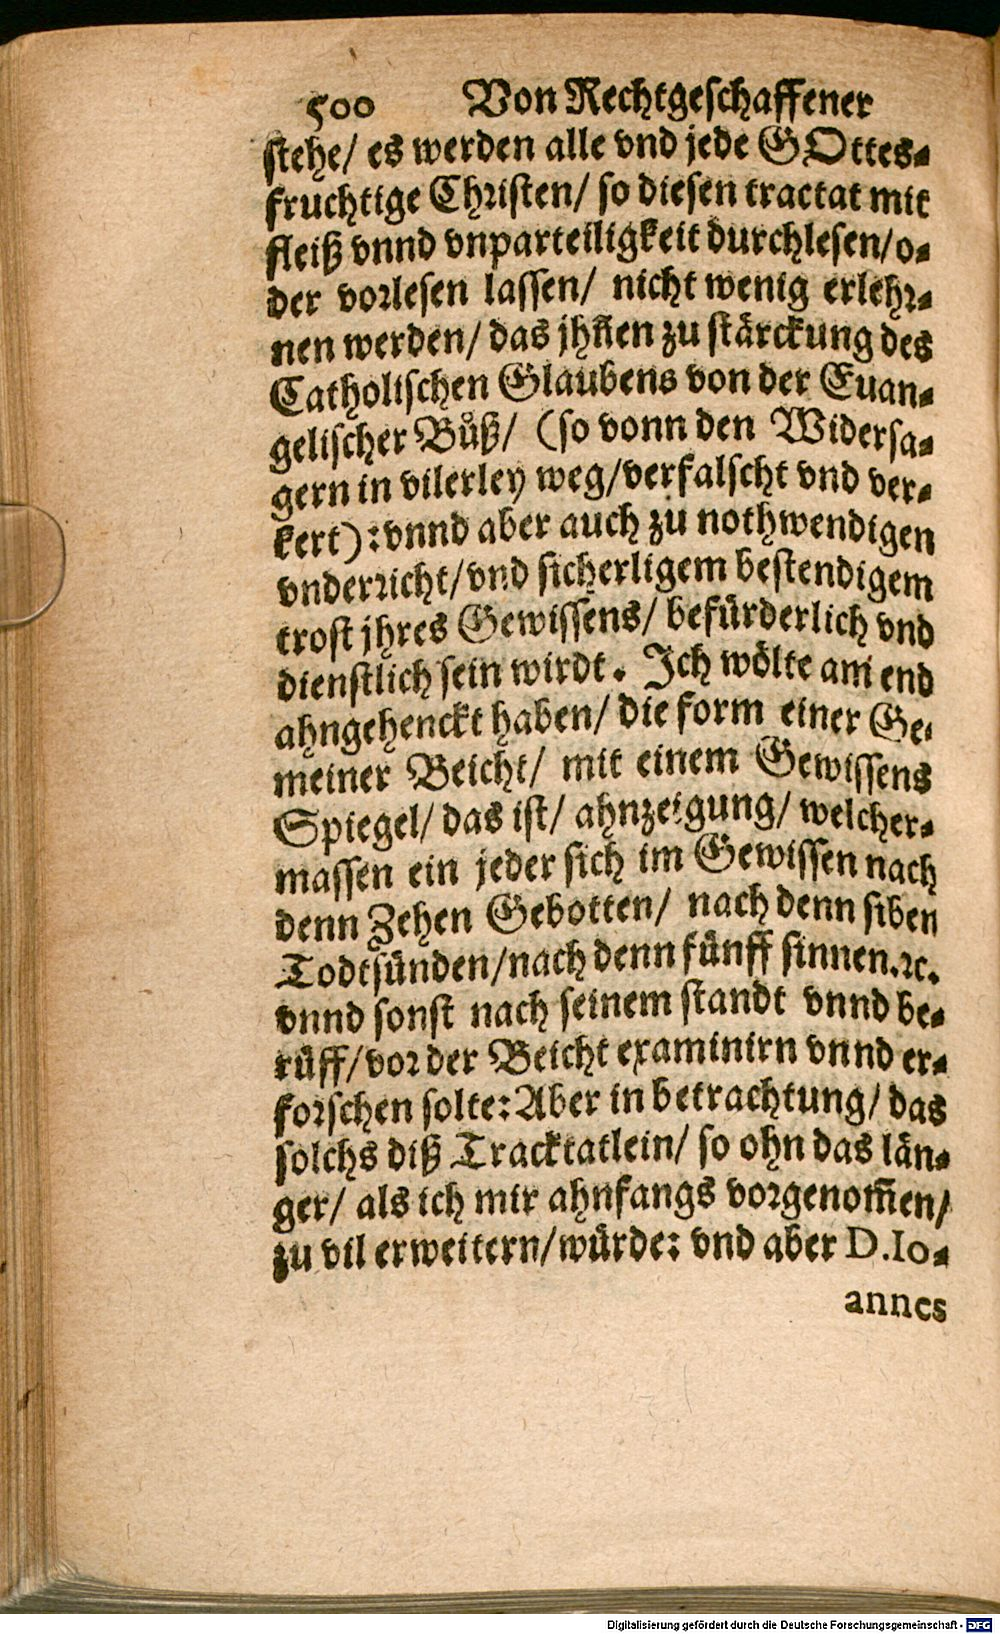 500 Von Rechtgeschaffener
stehe/ es werden alle vnd jede GOttes-
fruchtige Christen/ so diesen tractat mit
fleiß vnnd vnparteiligkeit durchlesen/ o-
der vorlesen lassen/ nicht wenig erlehr-
nen werden/ das jhñen zu stärckung des
Catholischen Glaubens von der Euan-
gelischer Bůß/ (so vonn den Widersa-
gern in vilerley weg/ verfalscht vnd ver-
kert): vnnd aber auch zu nothwendigen
vnderricht/ vnd sicherligem bestendigem
trost jhres Gewissens/ befürderlich vnd
dienstlich sein wirdt. Jch wölte am end
ahngehenckt haben/ die form einer Ge-
meiner Beicht/ mit einem Gewissens
Spiegel/ das ist/ ahnzeigung/ welcher-
massen ein jeder sich im Gewissen nach
denn Zehen Gebotten/ nach denn siben
Todtsünden/ nach denn fünff sinnen. ꝛc.
vnnd sonst nach seinem standt vnnd be-
rüff/ vor der Beicht examinirn vnnd er-
forschen solte: Aber in betrachtung/ das
solchs diß Tracktatlein/ so ohn das län-
ger/ als ich mir ahnfangs vorgenom̃en/
zu vil erweitern/ würde: vnd aber D. Io-
annes
Digitalisierung gefördert durch die Deutsche Forschungsgemeinschaft - DFG